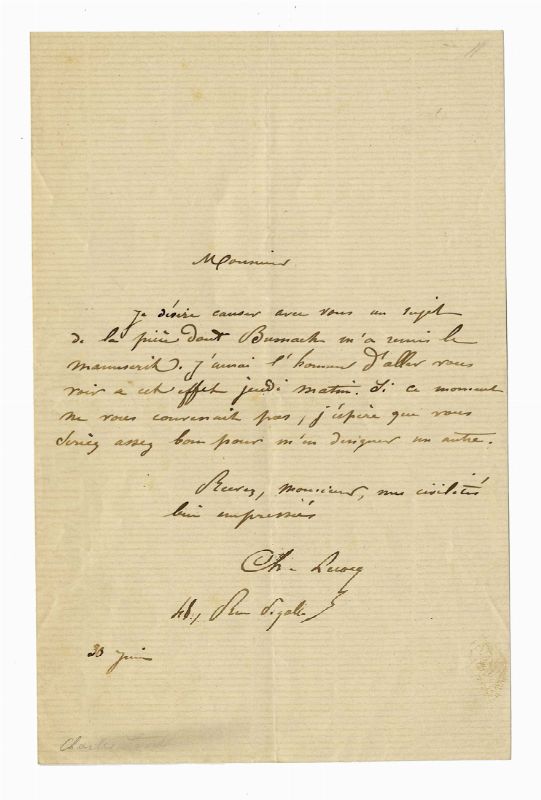 Monsieur
Je désire causer avec vous au sujet
de la pièce dont Busnach m'a remis le
manuscrit. J'aurai l'honneur d'aller vous
voir a cet effet jeudi matin. Si ce moment
ne vous convenait pas, j'espère que vous
seriez assez bon pour m'en désigner un autre.
Recevez, monsieur, mes civilités
bien empressées
Ch. Lecocq
48, Rue Pigalle
30 juin
Charles